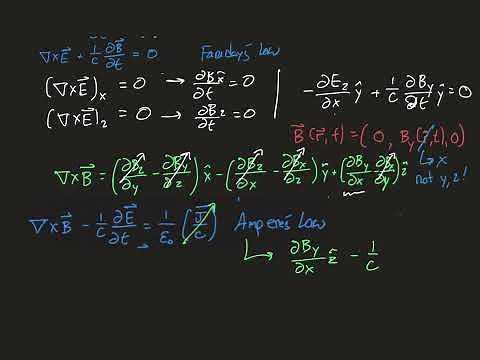 ∇×E⃗ + 1/c ∂B⃗/∂t = 0 Faraday's Law
(∇×E⃗)ₓ = 0 → ∂Bₓ/∂t = 0
(∇×E⃗)_z = 0 → ∂B_z/∂t = 0
-∂E_z/∂x ŷ + 1/c ∂B_y/∂t ŷ = 0
B⃗(r⃗,t) = (0, B_y(r⃗,t), 0)
↳ x
not y,z!
∇×B⃗ = (∂B_z/∂y - ∂B_y/∂z) x̂ - (∂B_z/∂x - ∂Bₓ/∂z) ŷ + (∂B_y/∂x - ∂Bₓ/∂y) ẑ
∇×B⃗ - 1/c ∂E⃗/∂t = 1/ε₀ (J⃗/c) Ampere's Law
↳ ∂B_y/∂x ẑ - 1/c